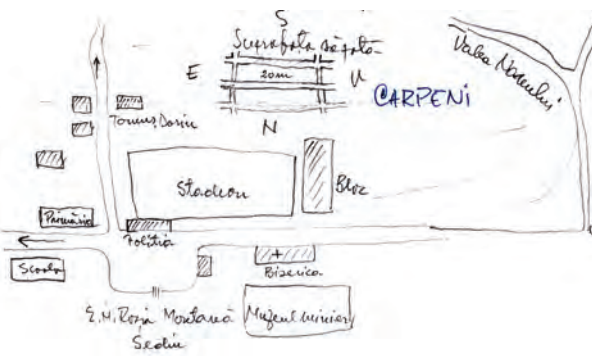 S
Suprafata săpată
E
20m
V
CARPENI
N
Valea Nanului
Tomuș Dorin
Stadion
Bloc
Primăria
Politia
Școala
Biserica
E.M. Roșia Montană
Sediu
Muzeul minier